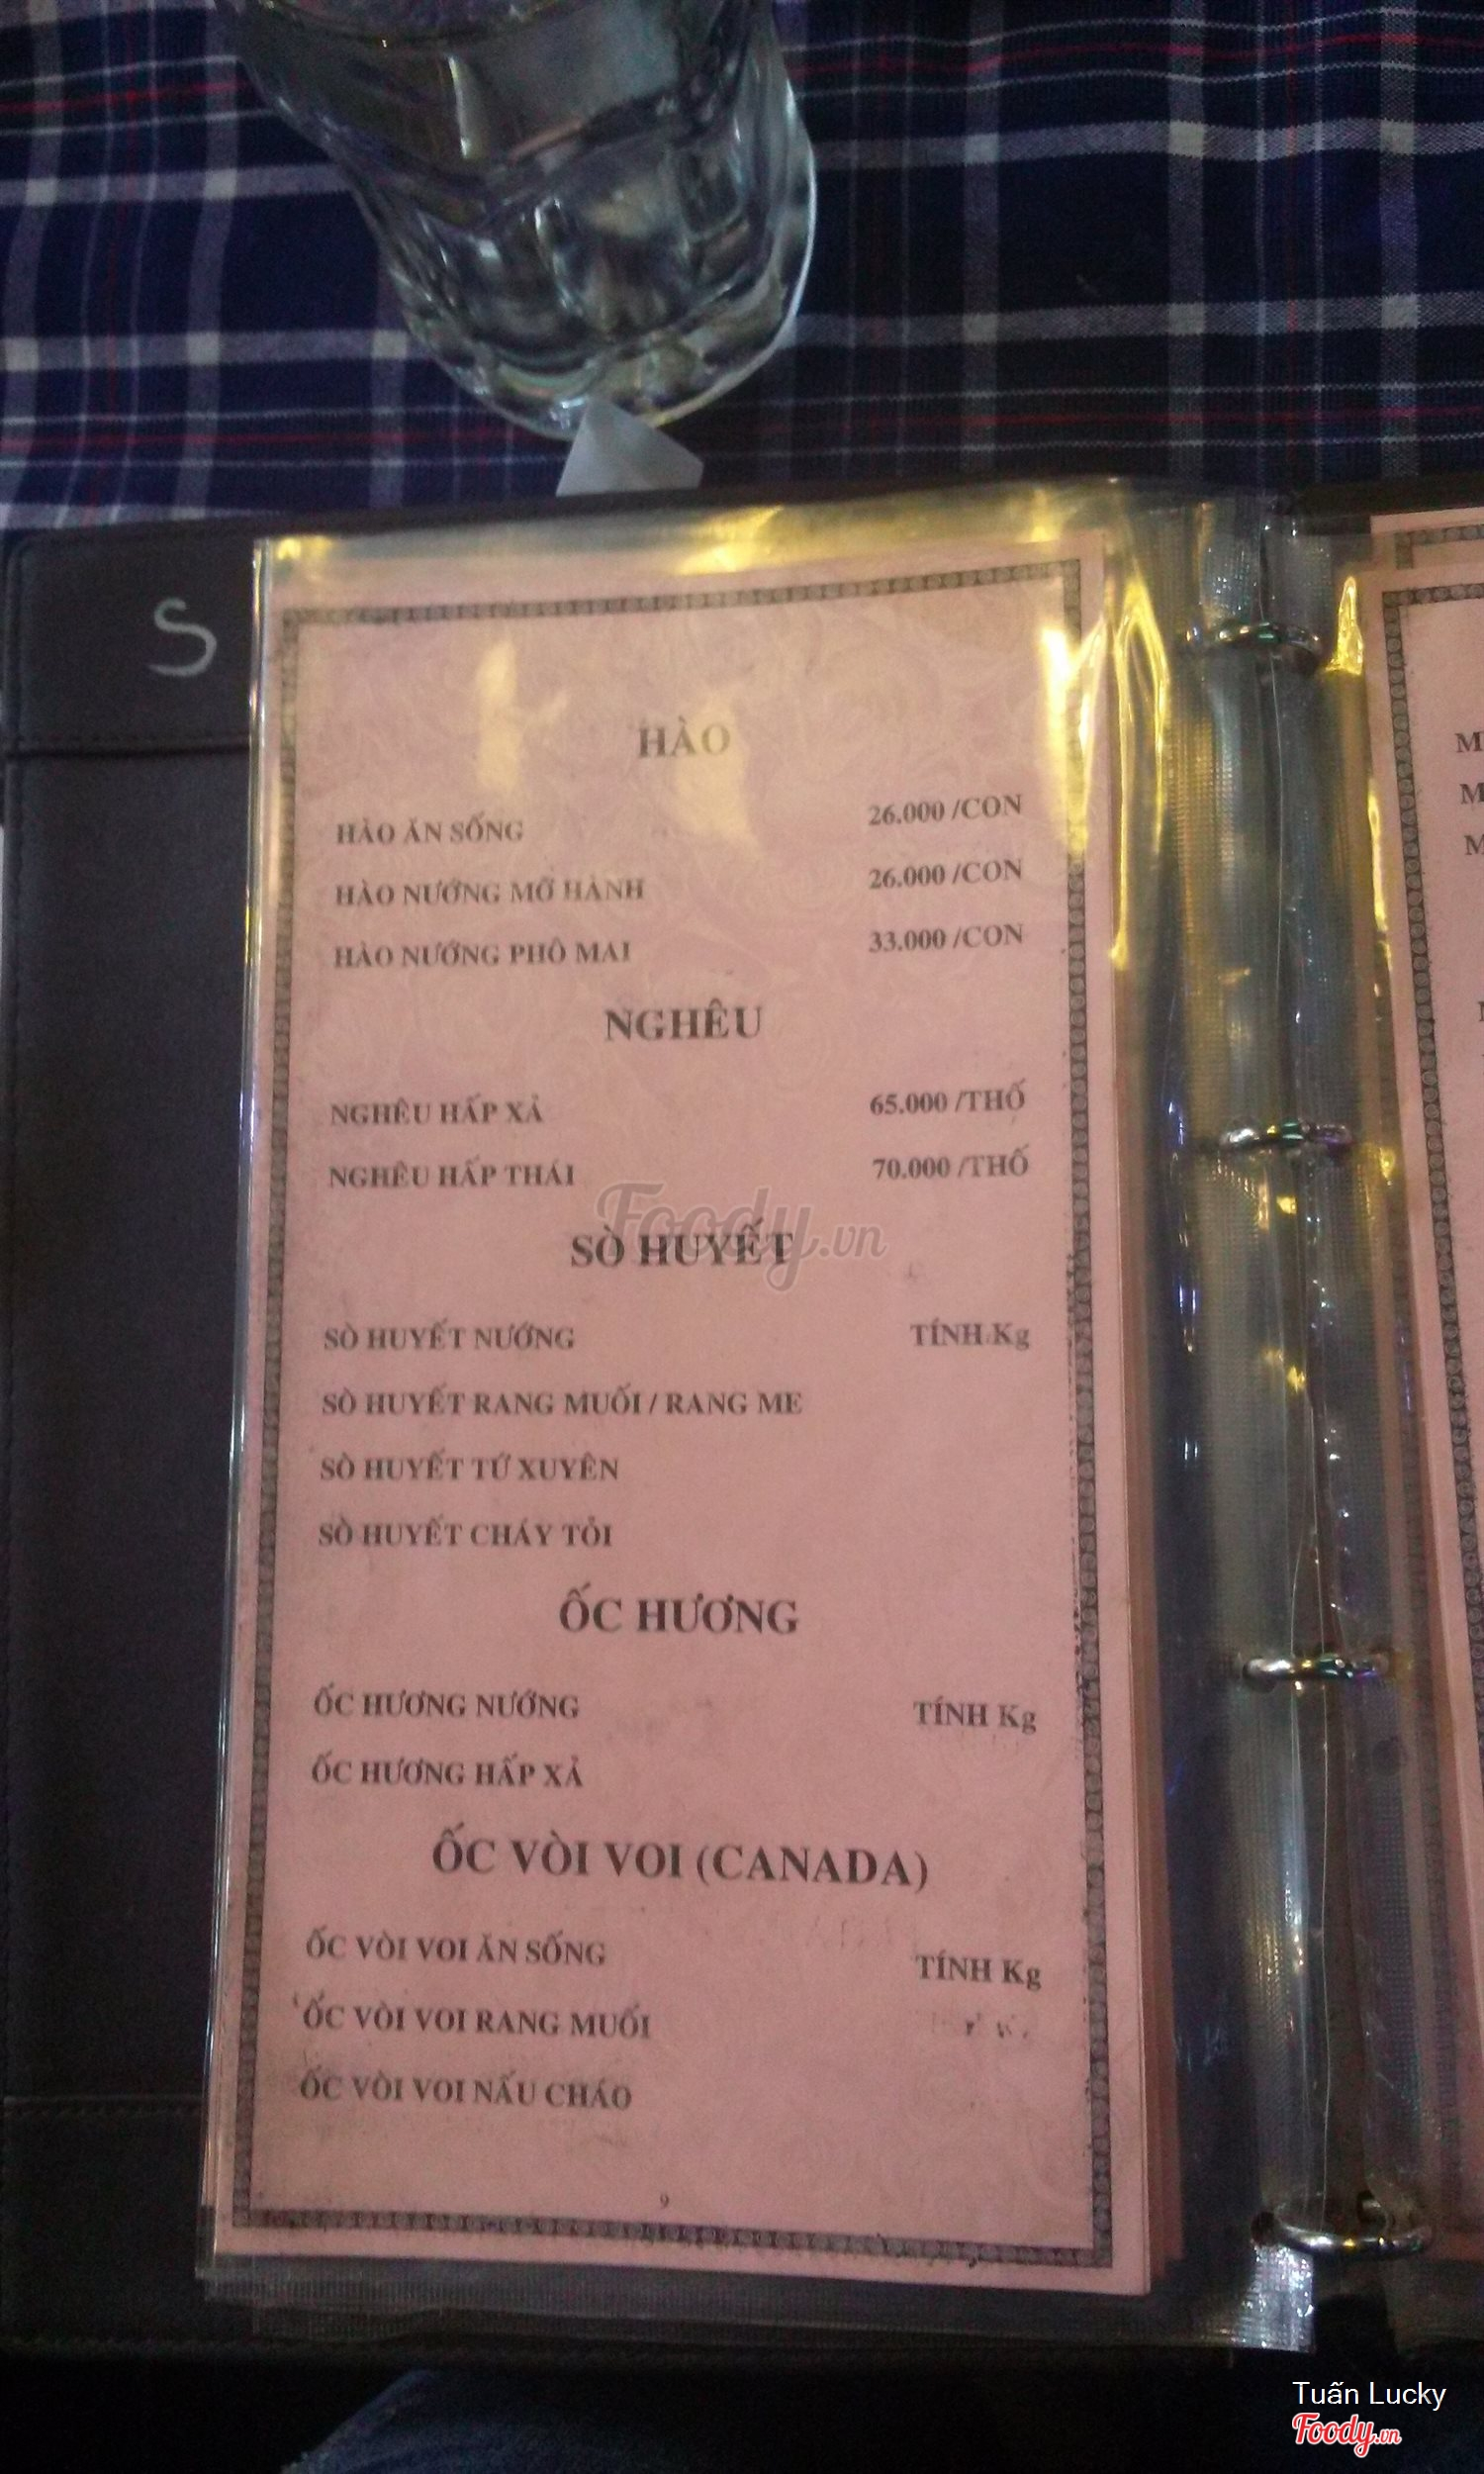 S
HÀO
HÀO ĂN SỐNG 26.000 /CON
HÀO NƯỚNG MỠ HÀNH 26.000 /CON
HÀO NƯỚNG PHÔ MAI 33.000 /CON
NGHÊU
NGHÊU HẤP XẢ 65.000 /THỐ
NGHÊU HẤP THÁI 70.000 /THỐ
Foody.vn
SÒ HUYẾT
SÒ HUYẾT NƯỚNG TÍNH Kg
SÒ HUYẾT RANG MUỐI / RANG ME
SÒ HUYẾT TỨ XUYÊN
SÒ HUYẾT CHÁY TỎI
ỐC HƯƠNG
ỐC HƯƠNG NƯỚNG TÍNH Kg
ỐC HƯƠNG HẤP XẢ
ỐC VÒI VOI (CANADA)
ỐC VÒI VOI ĂN SỐNG TÍNH Kg
ỐC VÒI VOI RANG MUỐI
ỐC VÒI VOI NẤU CHÁO
9
Tuấn Lucky
Foody.vn